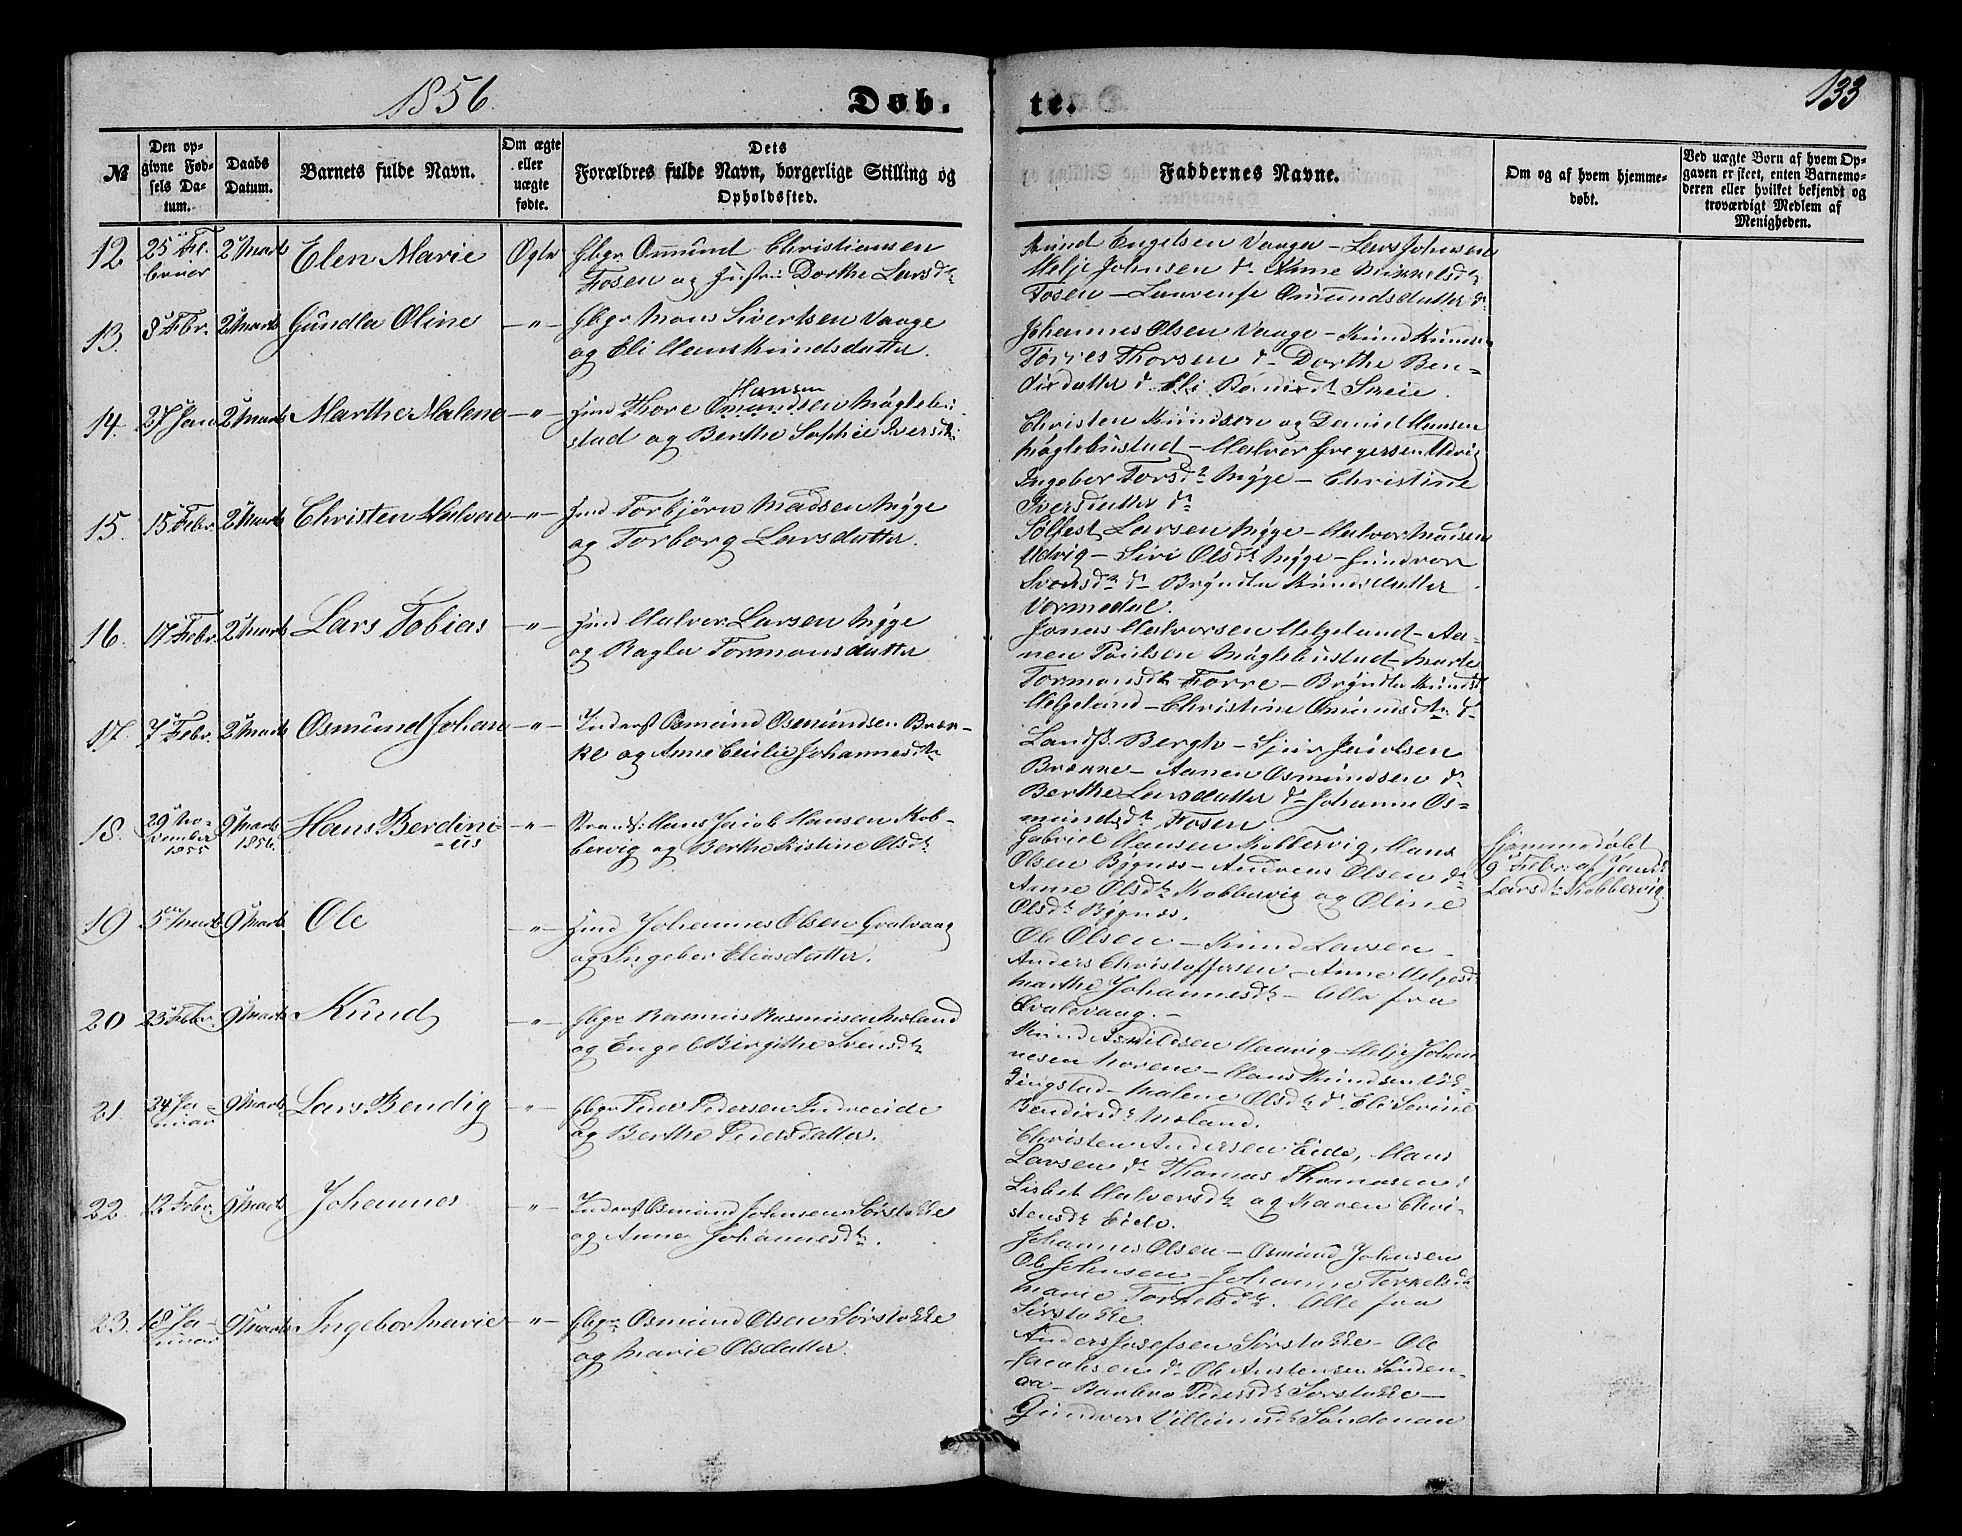 1856.
Døb-
te.
133
№
Den op-
givne Fød-
sels Da-
tum.
Daabs
Datum.
Barnets fulde Navn.
Om ægte
eller
uægte
fødte.
Dets
Forældres fulde Navn, borgerlige Stilling og
Opholdssted.
Faddernes Navne.
Om og af hvem hjemme-
døbt.
Ved uægte Born af hvem Op-
gaven er skeet, enten Barnemo-
deren eller hvilket bekjendt og
troværdigt Medlem af
Menigheden.
12
25 Fe-
bruar
2 Marts
Elen Marie
Ægte
Gbgr Osmund Christiansen
Fosen og Hustru Dorthe Larsdtr
Knud Engelsen Vaage - Lars Johnsen
Helje Johnsen do Anne Mikkelsdtr
Fosen - Laurense Osmundsdatter do
13.
8 Febr.
2 Marts
Gundla Oline
-"-
Gbgr Mons Sivertsen Vaage
og Eli Hans Knudsdatter.
Johannes Olsen Vaage - Knud Knudsen
Tørres Thorsen do Dorthe Ben-
dixdatter do Eli Bendixdtr Sreie.
14.
27 Jan
2 Marts
Marthe Malene
-"-
Hmd Thore Osmundsen Møglebu-
Hansen
stad og Berthe Sophie Iversdtr
Christen Knudsen og Daniel Hansen
Møglebustad - Halvor Gregersen Udvig
Ingebor Torsdtr Myge - Christine
Iversdatter do
15.
15 Febr.
2 Marts
Christen Halvor
-"-
Hmd Torbjørn Madsen Myge
og Torborg Larsdatter.
Solfest Larsen Myge - Halvor Madsen
Udvig - Siri Olsdtr Myge - Gundvor
Svensdtr do - Bryndla Knudsdatter
Vormedal.
16.
17 Febr.
2 Marts
Lars Tobias
-"-
Hmd Halvor Larsen Myge
og Ragla Tormonsdatter
Jonas Halvorsen Helgeland - Aa-
nen Poulsen Møglebustad - Marte
Tormonsdtr Førre - Bryndla Knudsdtr
Helgeland - Christine Osmundsdtr do
17.
7 Febr.
2 Marts
Osmund Johan
-"-
Inderst Osmund Osmundsen Bræk-
ke og Anne Cecilie Johannesdtr
Landh. Bergh - Sjur Jacobsen
Brække - Aanen Osmundsen do
Berthe Larsdatter do Johanne Os-
mundsdtr Fosen.
18.
29 No-
vember
1855
9 Marts
1856.
Hans Berdini-
us
-"-
Strands. Hans Jacob Hansen Kob-
bervig og Berthe Kistine Olsdtr
Gabriel Hansen Kobbervig, Hans
Olsen Bygnes - Andreas Olsen do
Anne Olsdtr Kobbervig og Oline
Olsdtr Bygnes.
Hjemmedøbt
9 Febr. af
Larsdtr Kobbervig
19
5 Marts
9 Marts
Ole
-"-
Hmd Johannes Olsen Qvalvaag
og Ingebor Eliasdatter.
Ole Olsen - Knud Larsen
Anders Christoffersen - Anne Helgesd
Marthe Johannesdtr - Alle fra
Qvalevaag. -
20
23 Febr.
9 Marts
Knud
-"-
Gbgr Rasmus Rasmussen Moland
og Engel Birgithe Svensdtr
Knud Asmildsen Haavig - Helje Johan-
nesen Norem - Hans Knudsen
Ringstad - Malene Olsdtr do Eli Sevine
Bendixdtr Moland.
21.
24 Ja-
nuar
9 Marts
Lars Bendig
-"-
Gbgr Peder Pedersen Indreeide
og Berthe Pedersdatter.
Christen Andersen Eide, Hans
Larsen do Thomas Thomasen
Lisbet Halversdtr og Karen Chri-
stensdtr Eide.
22.
12 Febr.
9 Marts
Johannes
-"-
Inderst Osmund Johnsen Sørstokke
og Anne Johannesdtr.
Johannes Olsen - Osmund Johnsen
Ole Johnsen - Johanne Torkelsdtr
Marie Torkelsdtr. Alle fra
Sørstokke.
23.
18 Ja-
nuar
9 Marts
Ingebor Marie
-"-
Gbgr Osmund Olsen Sørstokke
og Marie Olsdatter.
Anders Josefsen Sørstokke - Ole
Jacobsen do Ole Austensen Sønden-
aa - Barbro Pedersdtr Sørstokke -
Gundvor Villumsdtr Søndenaa